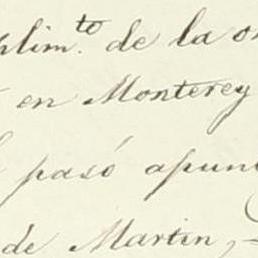 plim.to de la or
en Monterey
pasó apun
de Martin,